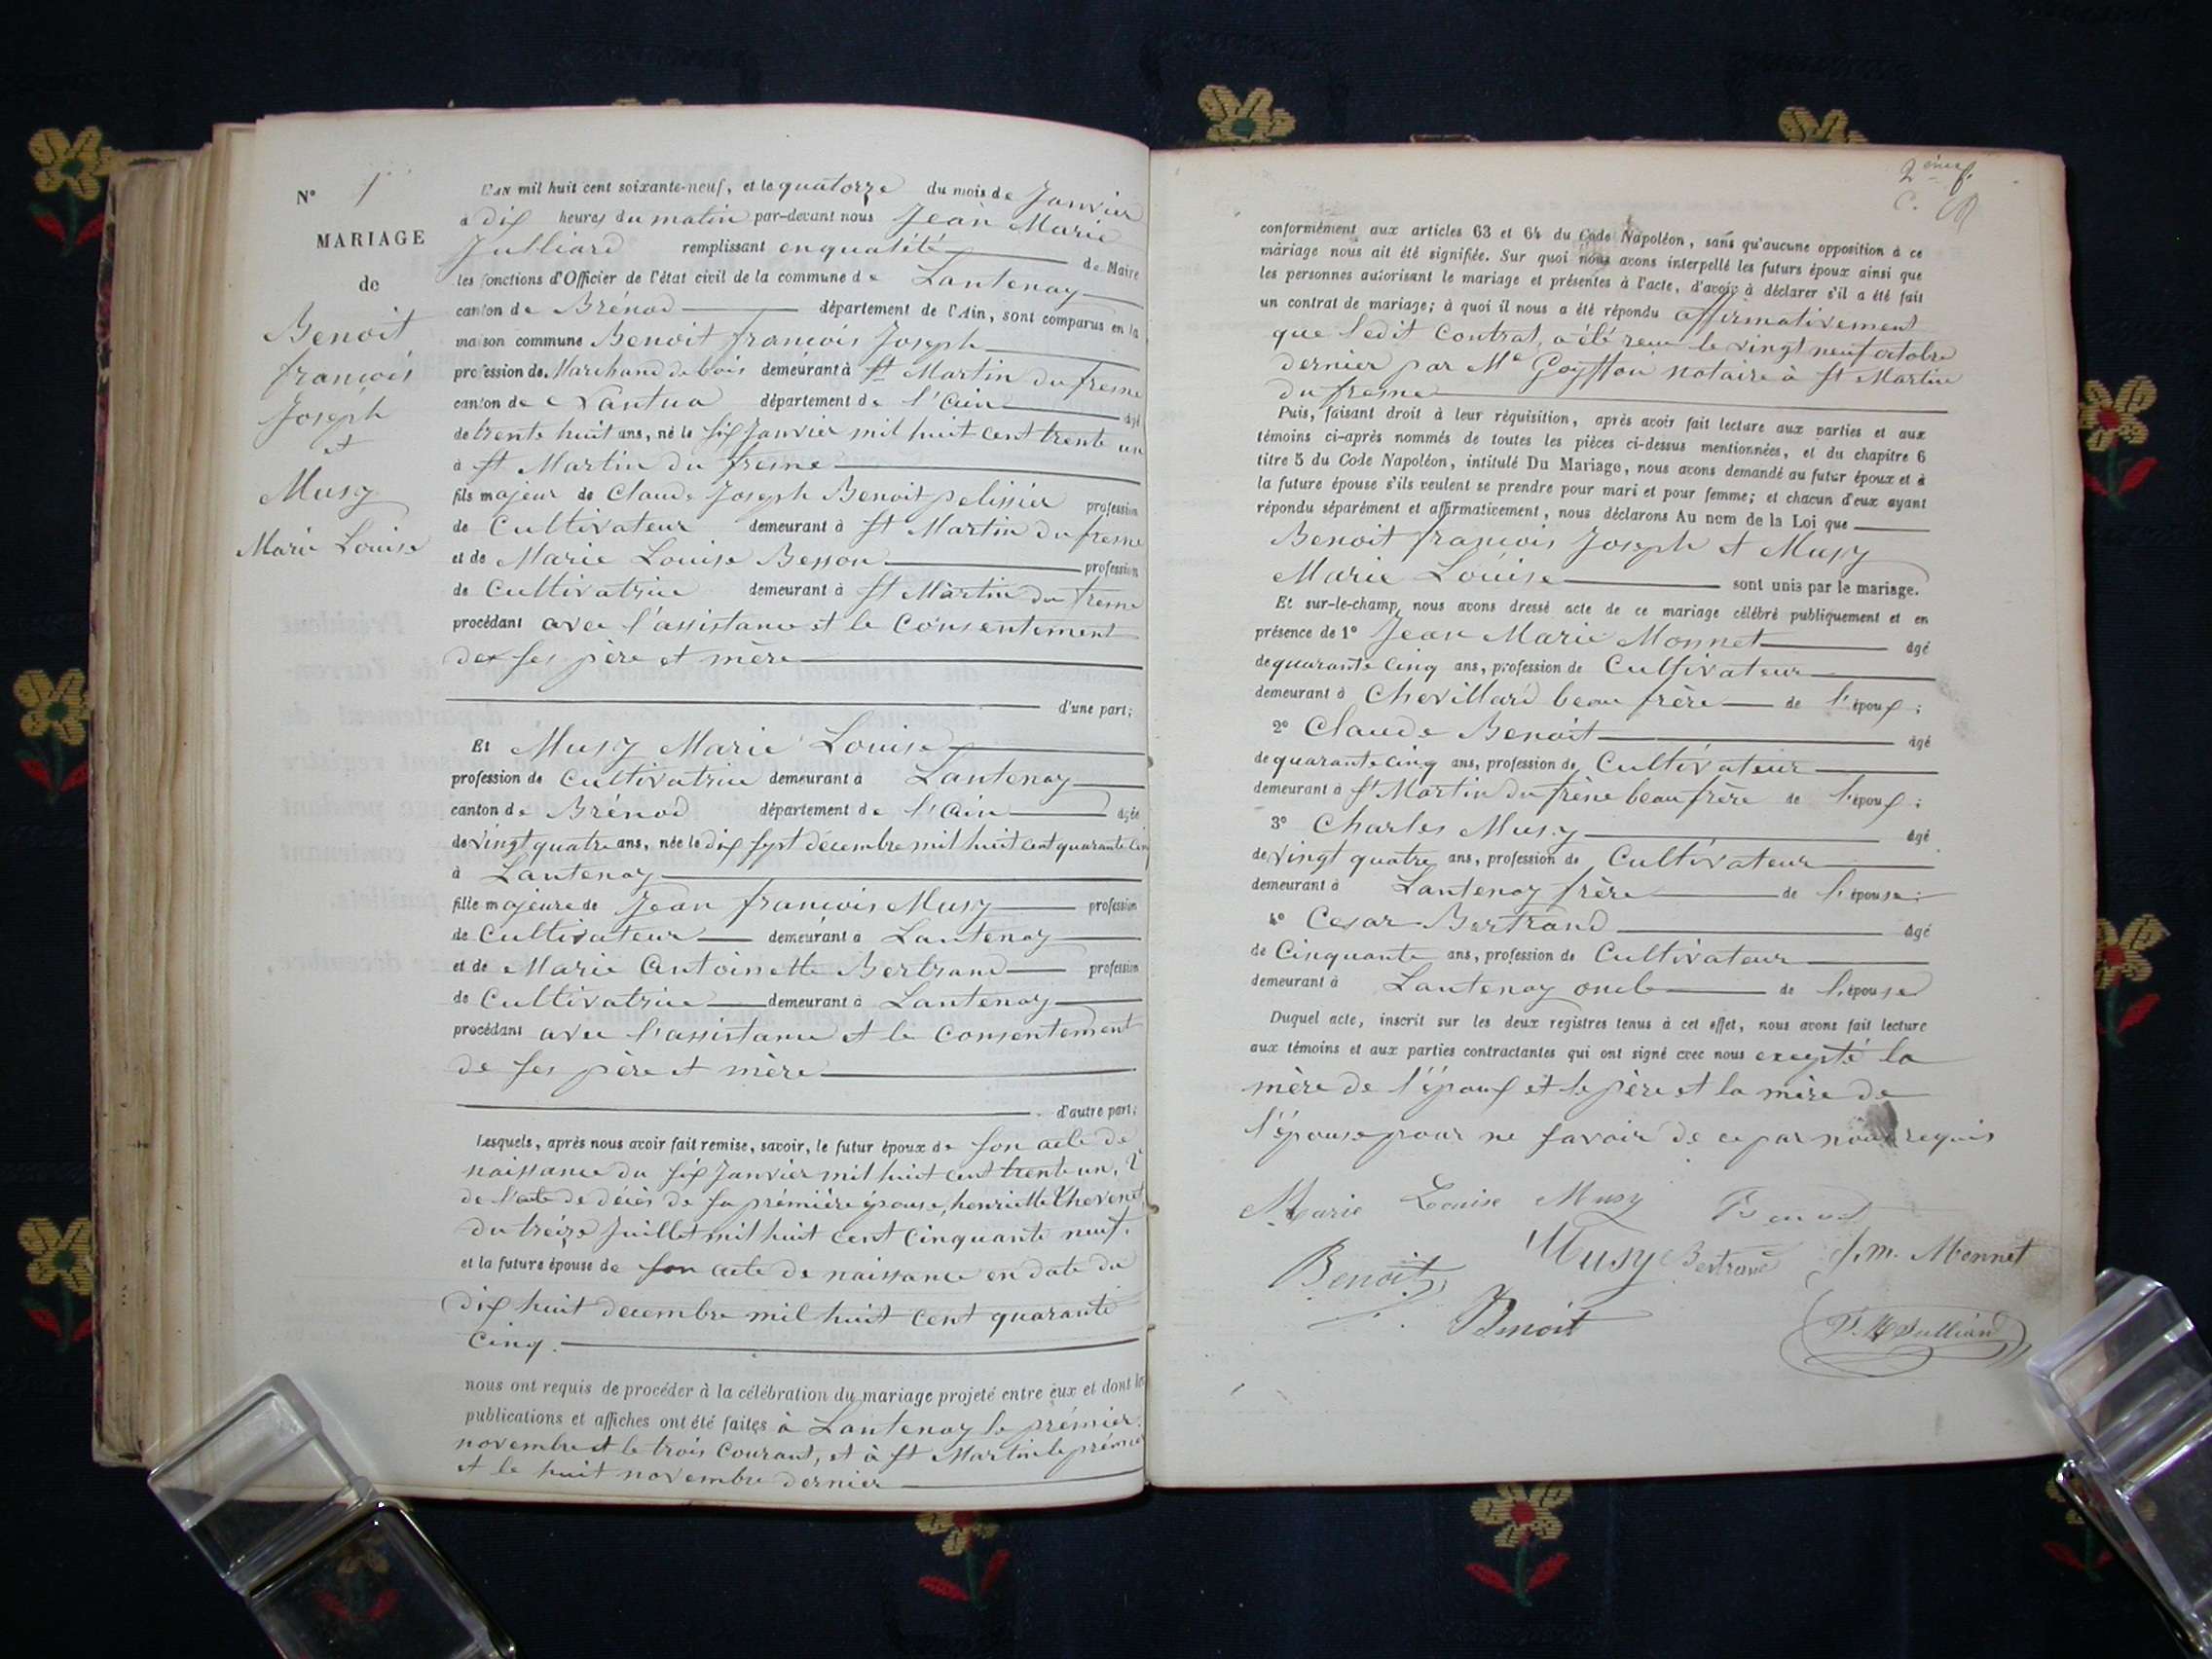 N° 1
MARIAGE
de
Benoit
françois
Joseph
et
Musy
Marie Louise
L'AN mil huit cent soixante-neuf, et le quatorze du mois de Janvier
à dix heures du matin par-devant nous Jean Marie
Julliard remplissant en qualité de Maire
les fonctions d'Officier de l'état civil de la commune de Lantenay
canton de Brénod département de l'Ain, sont comparus en la
maison commune Benoit françois Joseph
profession de Marchand de bois demeurant à St Martin du fresne
canton de Nantua département de l'ain âgé
de trente huit ans, né le six Janvier mil huit cent trente un
à St Martin du fresne
fils majeur de Claude Joseph Benoit pelissier profession
de Cultivateur demeurant à St Martin du fresne
et de Marie Louise Besson profession
de Cultivatrice demeurant à St Martin du fresne
procédant avec l'assistance et le Consentement
de ses père et mère
d'une part;
Et Musy Marie Louise
profession de Cultivatrice demeurant à Lantenay
canton de Brénod département de l'ain âgée
de vingt quatre ans, née le dix sept décembre mil huit cent quarante cinq
à Lantenay
fille majeure de Jean françois Musy profession
de Cultivateur demeurant à Lantenay
et de Marie Antoinette Bertrand profession
de Cultivatrice demeurant à Lantenay
procédant avec l'assistance et le Consentement
de ses père et mère
d'autre part;
Lesquels, après nous avoir fait remise, savoir, le futur époux de son acte de
naissance du six Janvier mil huit cent trente un, 2°
de l'acte de décès de sa prémière épouse, henriette Thevenet
du treize Juillet mil huit cent cinquante neuf.
et la future épouse de son acte de naissance en date du
dix huit decembre mil huit cent quarante
Cinq.
nous ont requis de procéder à la célébration du mariage projeté entre eux et dont les
publications et affiches ont été faites à Lantenay le prémier
novembre et le trois Courant, et à St Martin le prémier
et le huit novembre dernier
2ème f.
conformément aux articles 63 et 64 du Code Napoléon, sans qu'aucune opposition à ce
mariage nous ait été signifiée. Sur quoi nous avons interpellé les futurs époux ainsi que
les personnes autorisant le mariage et présentes à l'acte, d'avoir à déclarer s'il a été fait
un contrat de mariage; à quoi il nous a été répondu affirmativement
que ledit Contrat, a été reçu le vingt neuf octobre
dernier par Me notaire à St Martin
du fresne
Puis, faisant droit à leur réquisition, après avoir fait lecture aux parties et aux
témoins ci-après nommés de toutes les pièces ci-dessus mentionnées, et du chapitre 6
titre 5 du Code Napoléon, intitulé Du Mariage, nous avons demandé au futur époux et à
la future épouse s'ils veulent se prendre pour mari et pour femme; et chacun d'eux ayant
répondu séparément et affirmativement, nous déclarons Au nom de la Loi que
Benoit françois Joseph et Musy
Marie Louise sont unis par le mariage.
Et sur-le-champ, nous avons dressé acte de ce mariage célébré publiquement et en
présence de 1° Jean Marie Monnet âgé
de quarante Cinq ans, profession de Cultivateur
demeurant à Chevillard beau frère de l'époux;
2° Claude Benoit âgé
de quarante cinq ans, profession de Cultivateur
demeurant à St Martin du frène beau frère de l'époux;
3° Charles Musy âgé
de vingt quatre ans, profession de Cultivateur
demeurant à Lantenay frère de l'épouse;
4° Cesar Bertrand âgé
de Cinquante ans, profession de Cultivateur
demeurant à Lantenay oncle de l'épouse
Duquel acte, inscrit sur les deux registres tenus à cet effet, nous avons fait lecture
aux témoins et aux parties contractantes qui ont signé avec nous excepté la
mère de l'époux et le père et la mère de
l'épouse pour ne savoir de ce par nous requis
Marie Louise Musy Benoit
Benoit Musy Bertrand J. m. Monnet
Benoit J. M Julliard